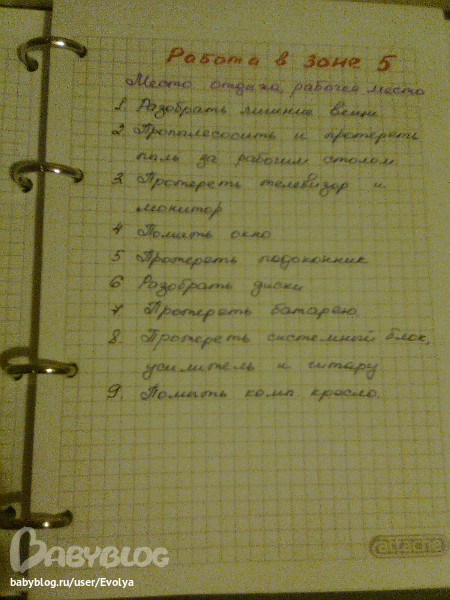 Работа в зоне 5
Место отдыха, рабочее место
1. Разобрать лишние вещи
2. Пропылесосить и протереть
пыль за рабочим столом
3. Протереть телевизор и
монитор
4 Помыть окно
5 Протереть подоконник
6 Разобрать диски
7. Протереть батарею.
8. Протереть системный блок,
усилитель и гитару
9. Помыть комп кресло.
attache
BABYBLOG
babyblog.ru/user/Evolya